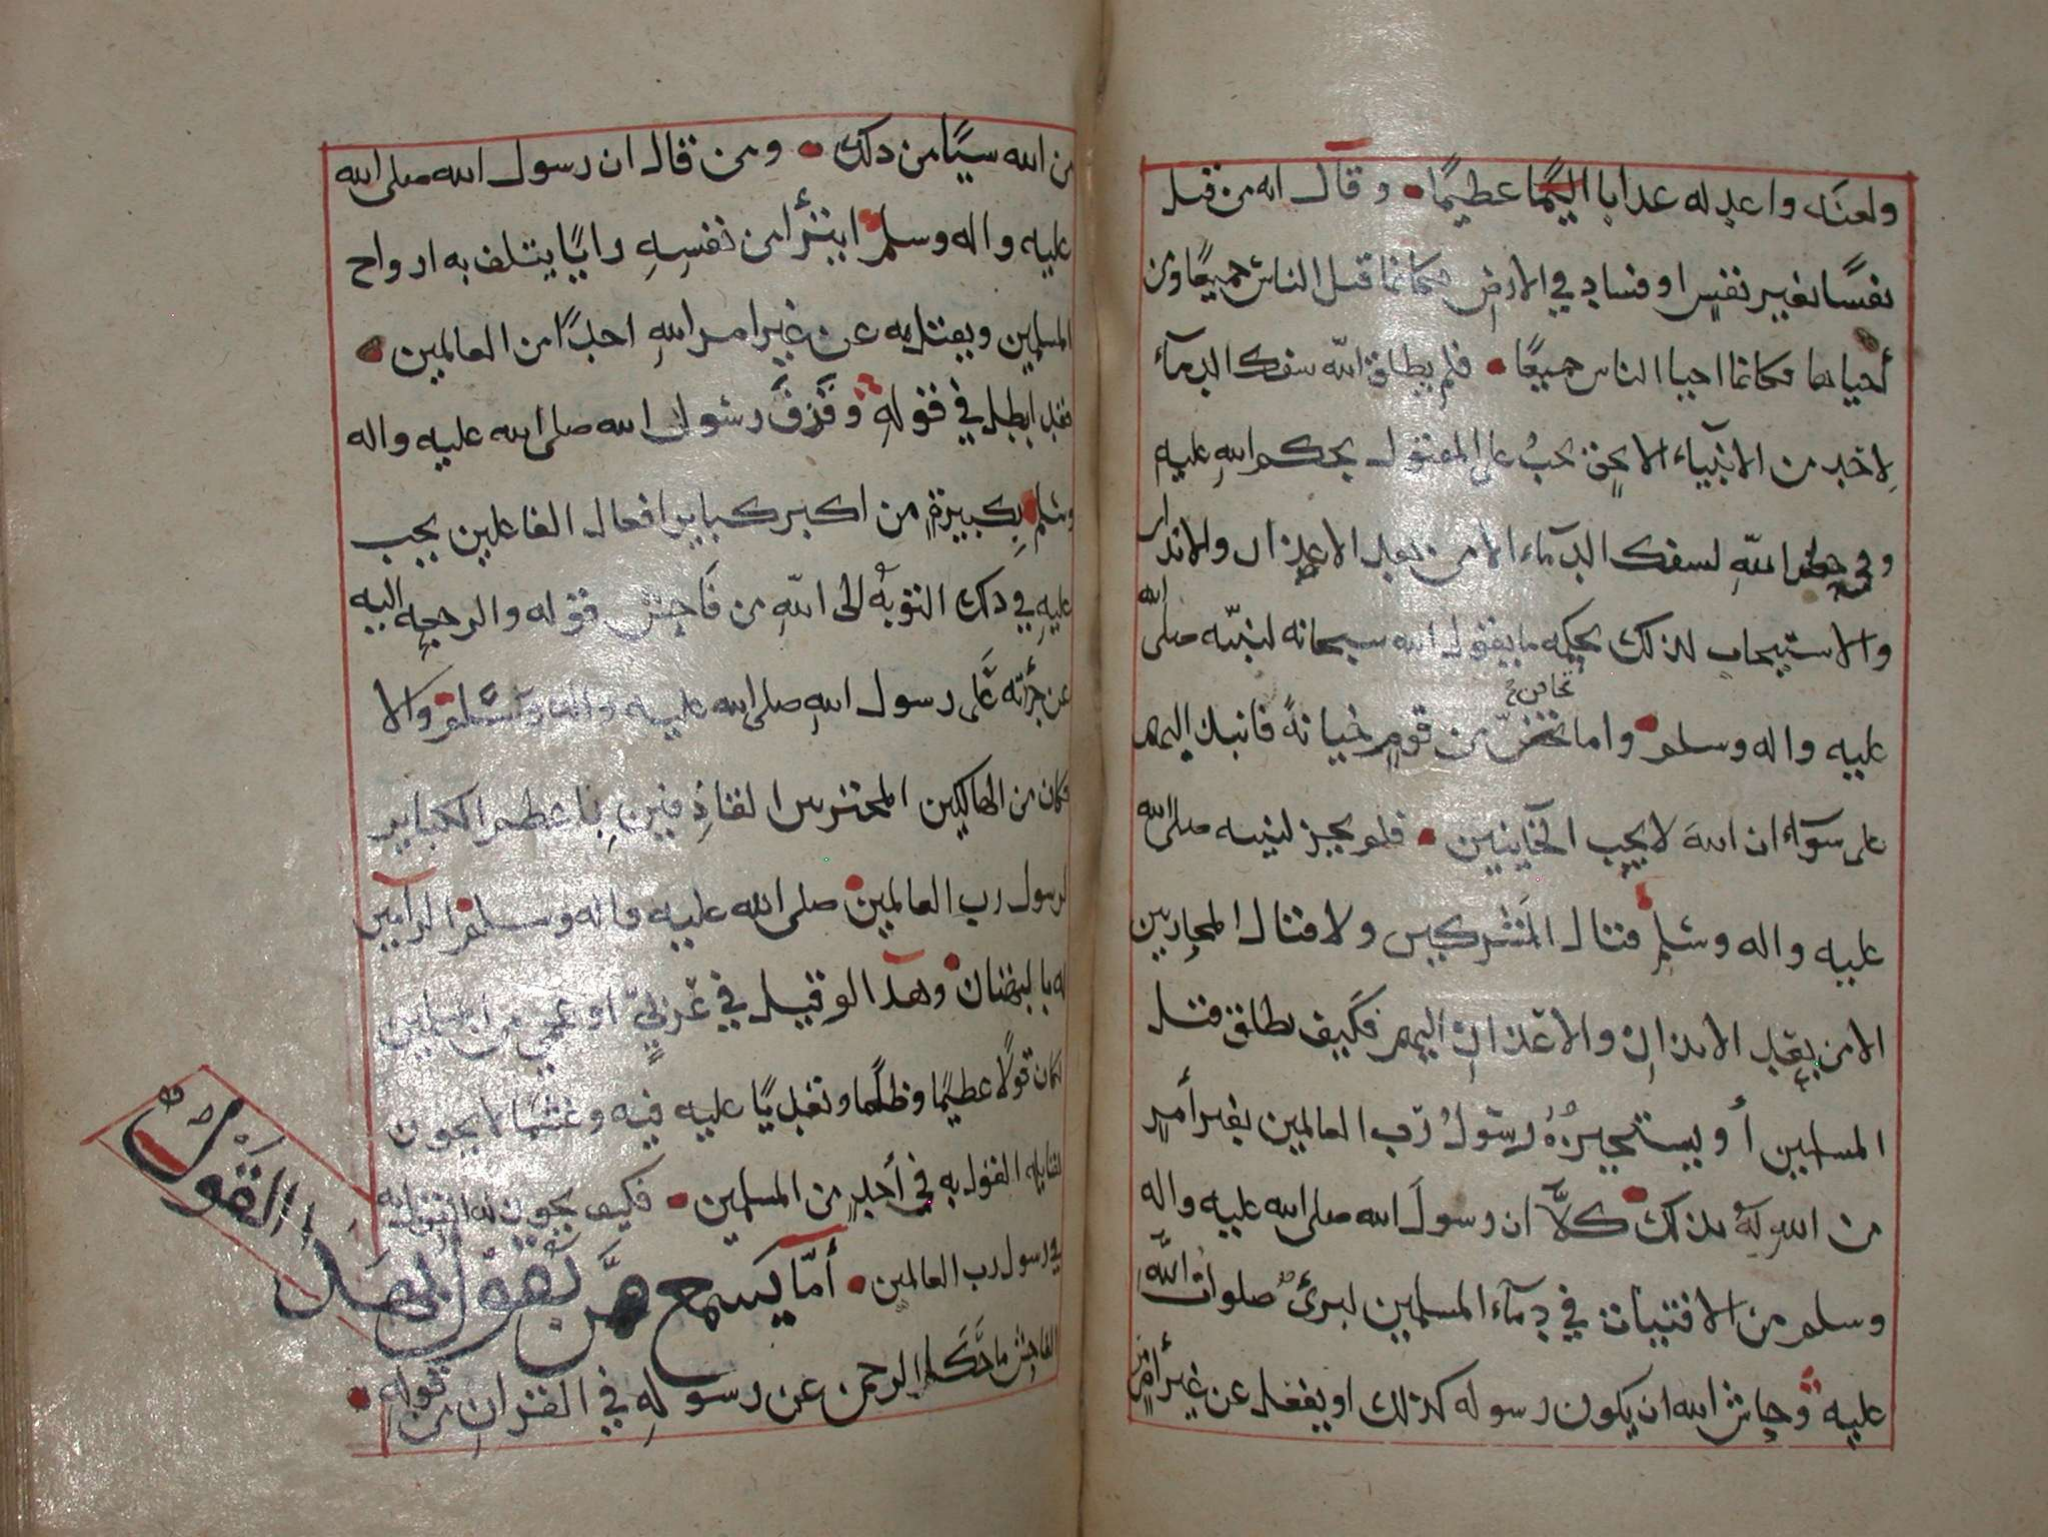 ولعنه واعد له عدابا اليما عظيما • وقال انه من قتل
نفسًا بغير نفسٍ او فساد في الارض فكانما قتل الناس جميعًا ومن
أحياها فكانما احيا الناس جميعًا • فلم يطلق الله سفك الدمآء
لاحد من الانبياء الا بحق يجبُ على المقتول بحكم اللهِ عليهِ
وفي اللهِ لسفك الدمآء الا من بعد الاعذار والانذار
والاستيجاب لذلك يحكمه ما يقول الله سبحانه لنبيّه صلى الله
عليه واله وسلم • واما تخافنّ من قومٍ خيانةً فانبذ اليهم
تخافن
على سوآء ان اللهَ لا يحب الخآينين • فلم يجز لنبيه صلى الله
عليه واله وسلم قتال المشركين ولا قتال المحاربين
الا من بعد الانذارِ والاعذارِ اليهم فكيف يطلق قتل
المسلمين أو يستجيزهُ رسولُ رَب العالمين بغير أمرٍ
من اللهِ لهُ بذلك • كلاَّ ان رسولَ الله صلى الله عليه واله
وسلم من الافتيات في دمآء المسلمين لبرئ صلوات اللَّه
عليه • وحاش لله ان يكون رسوله كذلك او يفعل عن غير أمرٍ من
من الله سيًا من دلك • ومن قال ان رسول الله صلى الله
عليه واله وسلم ابتزأ من نفسِهِ رايًا يتلف به ارواح
المسلمين ويقتل به عن غير امر اللهِ احدًا من العالمين •
فقد ابطل في قولهِ وقزف رسول الله صلى الله عليه واله
وسلم • بِكبيرةٍ من اكبر كباير افعال الفاعلين يجب
عليهِ في دلك التوبهُ الى اللّهِ من فَاحِش قوله والرجعه اليه
عن جرأته على رسول اللهِ صلى الله عليه واله وسلم • والا
فكان من الهالكين القاذِفينِ بِاعظم الكباير
لرسول رب العالمين • صلى الله عليه واله وسلم • الرآمين
له بالبهتان • وهذا لو قيل في عَربيٍّ او عجمي من المسلمين
لكان قولًا عظيمًا وظلمًا وتعديًا عليه فيه وغشمًا لا يجوز
لقايله القول به في أحدٍ من المسلمين • فكيف يجوز له القول به
في رسول رب العالمين • أمّا يسمع مَن يقول بهذا القول
الفاحِش ما حَكَا الرحمن عن رسولِهِ في القرانِ من قوله •